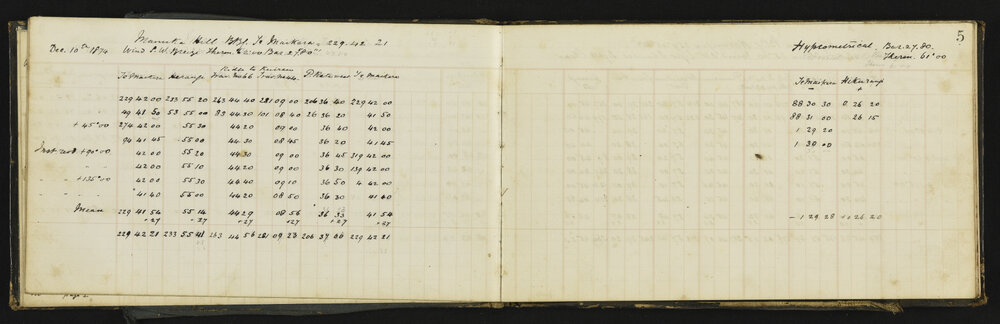 5
Manuka Hill to Markara 229. 42 21
Dec. 10th 1874 Wind S.W. Breeze Therm. 62.00 Bar. 27.80
Hyptometrical. Bar. 27.80.
Therm. 61°00
Ridge to
To Markara
To Markara
229 42 00 233 55 20 263 44 40 281 09 00 206 36 40 229 42 00
49 41 50 53 55 00 83 44 30 101 08 40 26 36 20 41 50
+45°00 274 42 00 55 30 44 20 09 00 36 40 42 00
94 41 45 55 00 44 30 08 45 36 20 41 45
Inst rev. +90°00 42 00 55 20 44 30 09 00 36 45 319 42 00
" 42 00 55 10 44 20 09 00 36 30 139 42 00
" " +135°00 42 00 55 30 44 40 09 10 36 50 4 42 00
" " " 41 40 55 00 44 20 08 50 36 30 41 40
Mean 229 41 54 55 14 44 29 08 56 36 33 41 54
+27 +27 +27 +27 +27 +27
229 42 21 233 55 41 263 44 56 281 09 23 206 37 00 229 42 21
88 30 30 0. 26 20
88 31 00 26 15
1 29 20
1 30 00
- 1 29 28 +0 26 20
page 2